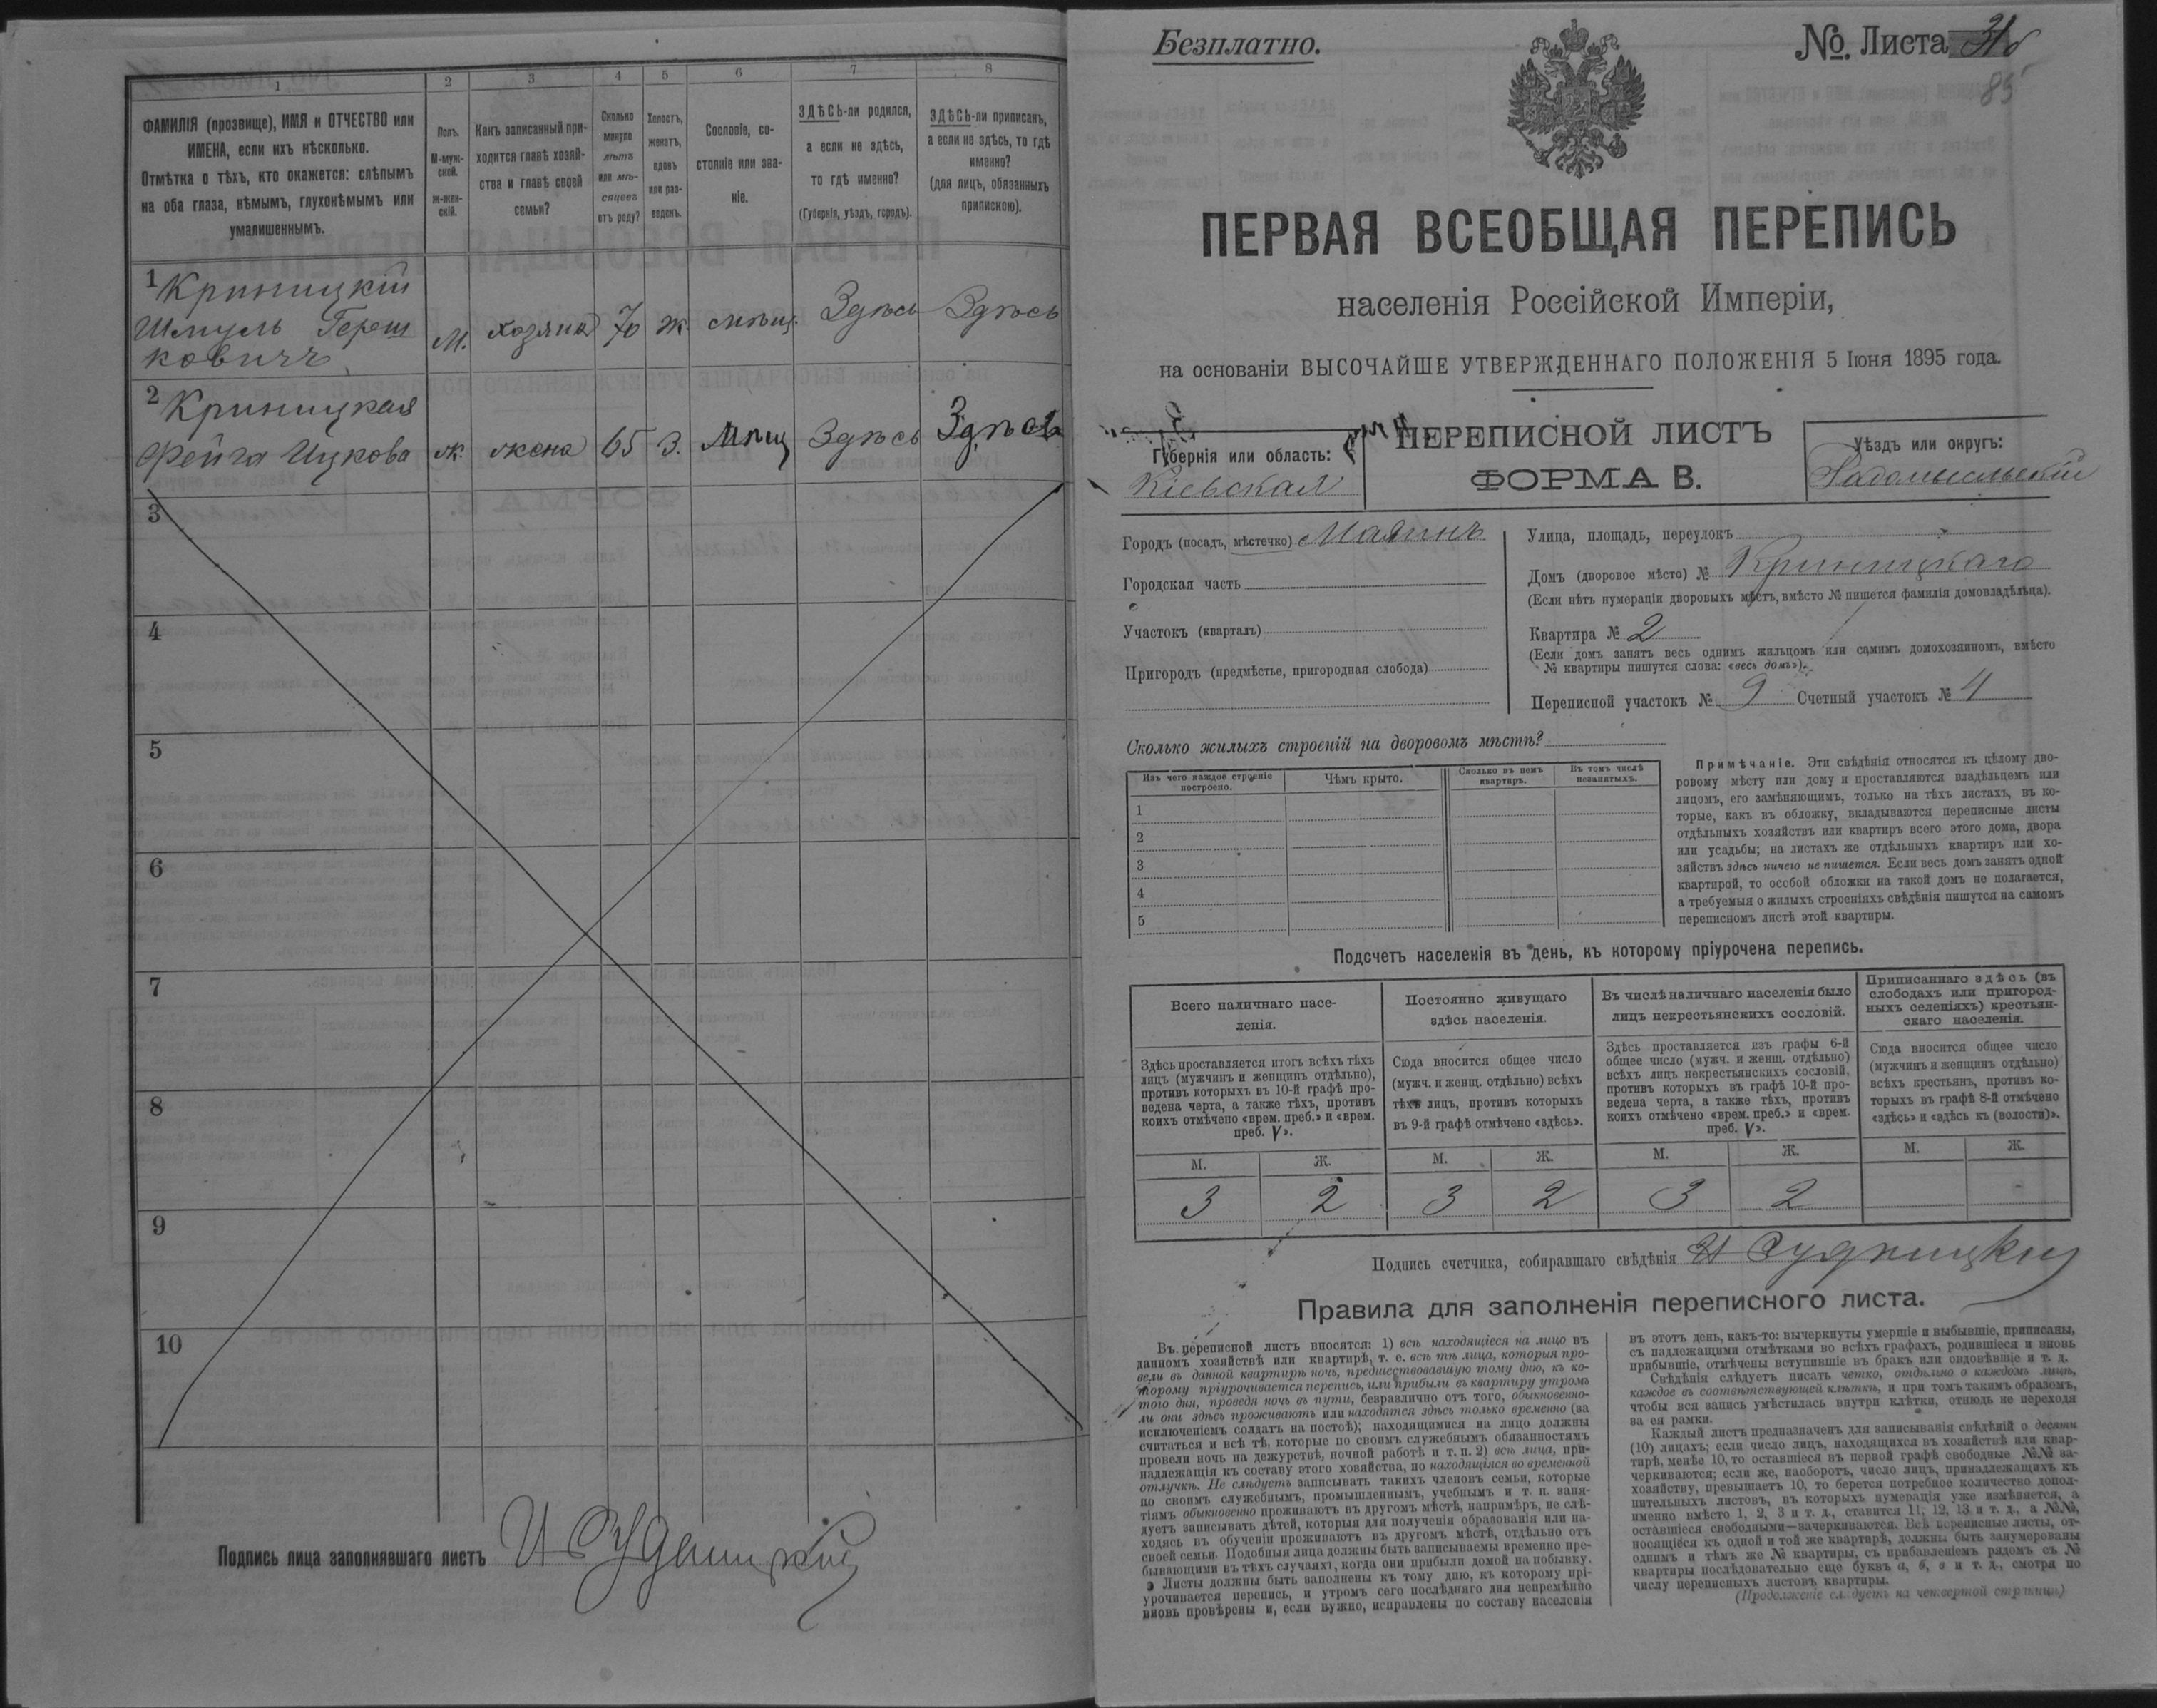 1 2 3 4 5 6 7 8
ФАМИЛІЯ (прозвище), ИМЯ и ОТЧЕСТВО или
ИМЕНА, если ихъ нѣсколько.
Отмѣтка о тѣхъ, кто окажется: слѣпымъ
на оба глаза, нѣмымъ, глухонѣмымъ или
умалишеннымъ.
Полъ.
М-муж-
ской.
ж-жен-
скій.
Какъ записанный при-
ходится главѣ хозяй-
ства и главѣ своей
семьи?
Сколько
минуло
лѣтъ
или мѣ-
сяцевъ
отъ роду?
Холостъ,
женатъ,
вдовъ
или раз-
веденъ.
Сословіе, со-
стояніе или зва-
ніе.
ЗДѢСЬ-ли родился,
а если не здѣсь,
то гдѣ именно?
(Губернія, уѣздъ, городъ).
ЗДѢСЬ-ли приписанъ,
а если не здѣсь, то гдѣ
именно?
(для лицъ, обязанныхъ
припискою).
1 Криницкій
Шмуль Гереш
ковичъ М. хозяинъ 70 ж. Здѣсь Здѣсь
2 Криницкая
Фейга Ицкова ж. жена 65 З. Мѣщ Здѣсь Здѣсь
3
4
5
6
7
8
9
10
Подпись лица заполнявшаго листъ
Безплатно.
№. Листа
85
ПЕРВАЯ ВСЕОБЩАЯ ПЕРЕПИСЬ
населенія Россійской Имперіи,
на основаніи ВЫСОЧАЙШЕ УТВЕРЖДЕННАГО ПОЛОЖЕНІЯ 5 Іюня 1895 года.
Губернія или область:
Кіевская
ПЕРЕПИСНОЙ ЛИСТЪ
ФОРМА В.
Уѣздъ или округъ:
Радомысльскій
Городъ (посадъ, мѣстечко) Малинъ
Городская часть
Участокъ (кварталъ)
Пригородъ (предмѣстье, пригородная слобода)
Улица, площадь, переулокъ
Домъ (дворовое мѣсто) № Криницкаго
(Если нѣтъ нумераціи дворовыхъ мѣстъ, вмѣсто № пишется фамилія домовладѣльца).
Квартира № 2
(Если домъ занятъ весь однимъ жильцомъ или самимъ домохозяиномъ, вмѣсто
№ квартиры пишутся слова: «весь домъ»).
Переписной участокъ № 9 Счетный участокъ № 4
Сколько жилыхъ строеній на дворовомъ мѣстѣ?
Изъ чего каждое строеніе
построено.
Чѣмъ крыто.
Сколько въ немъ
квартиръ.
Въ томъ числѣ
незанятыхъ.
1
2
3
4
5
Примѣчаніе. Эти свѣдѣнія относятся къ цѣлому дво-
ровому мѣсту или дому и проставляются владѣльцемъ или
лицомъ, его замѣняющимъ, только на тѣхъ листахъ, въ ко-
торые, какъ въ обложку, вкладываются переписные листы
отдѣльныхъ хозяйствъ или квартиръ всего этого дома, двора
или усадьбы; на листахъ же отдѣльныхъ квартиръ или хо-
зяйствъ здѣсь ничего не пишется. Если весь домъ занятъ одной
квартирой, то особой обложки на такой домъ не полагается,
а требуемыя о жилыхъ строеніяхъ свѣдѣнія пишутся на самомъ
переписномъ листѣ этой квартиры.
Подсчетъ населенія въ день, къ которому пріурочена перепись.
Всего наличнаго насе-
ленія.
Здѣсь проставляется итогъ всѣхъ тѣхъ
лицъ (мужчинъ и женщинъ отдѣльно),
противъ которыхъ въ 10-й графѣ про-
ведена черта, а также тѣхъ, противъ
коихъ отмѣчено «врем. преб.» и «врем.
преб. V».
Постоянно живущаго
здѣсь населенія.
Сюда вносится общее число
(мужч. и женщ. отдѣльно) всѣхъ
тѣхъ лицъ, противъ которыхъ
въ 9-й графѣ отмѣчено «здѣсь».
Въ числѣ наличнаго населенія было
лицъ некрестьянскихъ сословій.
Здѣсь проставляется изъ графы 6-й
общее число (мужч. и женщ. отдѣльно)
всѣхъ лицъ некрестьянскихъ сословій,
противъ которыхъ въ графѣ 10-й про-
ведена черта, а также тѣхъ, противъ
коихъ отмѣчено «врем. преб.» и «врем.
преб. V».
Приписаннаго здѣсь (въ
слободахъ или пригород-
ныхъ селеніяхъ) крестьян-
скаго населенія.
Сюда вносится общее число
(мужчинъ и женщинъ отдѣльно)
всѣхъ крестьянъ, противъ ко-
торыхъ въ графѣ 8-й отмѣчено
«здѣсь» и «здѣсь къ (волости)».
М. Ж. М. Ж. М. Ж. М. Ж.
3 2 3 2 3 2
Подпись счетчика, собиравшаго свѣдѣнія
Правила для заполненія переписного листа.
Въ переписной листъ вносятся: 1) всѣ находящіеся на лицо въ
данномъ хозяйствѣ или квартирѣ, т. е. всѣ тѣ лица, которыя про-
вели въ данной квартирѣ ночь, предшествовавшую тому дню, къ ко-
торому пріурочивается перепись, или прибыли въ квартиру утромъ
того дня, проведя ночь въ пути, безразлично отъ того, обыкновенно-
ли они здѣсь проживаютъ или находятся здѣсь только временно (за
исключеніемъ солдатъ на постоѣ); находящимися на лицо должны
считаться и всѣ тѣ, которые по своимъ служебнымъ обязанностямъ
провели ночь на дежурствѣ, ночной работѣ и т. п. 2) всѣ лица, при-
надлежащія къ составу этого хозяйства, но находящіяся во временной
отлучкѣ. Не слѣдуетъ записывать такихъ членовъ семьи, которые
по своимъ служебнымъ, промышленнымъ, учебнымъ и т. п. заня-
тіямъ обыкновенно проживаютъ въ другомъ мѣстѣ, напримѣръ, не слѣ-
дуетъ записывать дѣтей, которыя для полученія образованія или на-
ходясь въ обученіи проживаютъ въ другомъ мѣстѣ, отдѣльно отъ
своей семьи. Подобныя лица должны быть записываемы временно пре-
бывающими въ тѣхъ случаяхъ, когда они прибыли домой на побывку.
Листы должны быть наполнены къ тому дню, къ которому прі-
урочивается перепись, и утромъ сего послѣдняго дня непремѣнно
вновь провѣрены и, если нужно, исправлены по составу населенія
въ этотъ день, какъ-то: вычеркнуты умершіе и выбывшіе, приписаны,
съ надлежащими отмѣтками во всѣхъ графахъ, родившіеся и вновь
прибывшіе, отмѣчены вступившіе въ бракъ или овдовѣвшіе и т. д.
Свѣдѣнія слѣдуетъ писать четко, отдѣльно о каждомъ лицѣ,
каждое въ соотвѣтствующей клѣткѣ, и при томъ такимъ образомъ,
чтобы вся запись умѣстилась внутри клѣтки, отнюдь не переходя
за ея рамки.
Каждый листъ предназначенъ для записыванія свѣдѣній о десяти
(10) лицахъ; если число лицъ, находящихся въ хозяйствѣ или квар-
тирѣ, менѣе 10, то оставшіеся въ первой графѣ свободные №№ за-
черкиваются; если же, наоборотъ, число лицъ, принадлежащихъ къ
хозяйству, превышаетъ 10, то берется потребное количество допол-
нительныхъ листовъ, въ которыхъ нумерація уже измѣняется, а
именно вмѣсто 1, 2, 3 и т. д., ставится 11, 12, 13 и т. д., а №№,
оставшіеся свободными—зачеркиваются. Всѣ переписные листы, от-
носящіеся къ одной и той же квартирѣ, должны быть занумерованы
однимъ и тѣмъ же № квартиры, съ прибавленіемъ рядомъ съ №
квартиры послѣдовательно еще буквъ а, б, в и т. д., смотря по
числу переписныхъ листовъ квартиры.
(Продолженіе слѣдуетъ на четвертой страницѣ)